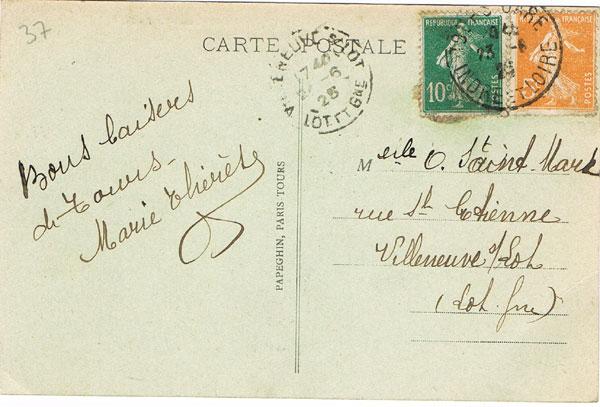 37
CARTE POSTALE
REPUBLIQUE FRANÇAISE
10c
POSTES
POSTES
VILLENEUVE S LOT
7 40
6
25
LOT ET GNE
INDRE ET LOIRE
Bons baisers
de Tours
Marie Thérèse
PAPEGHIN, PARIS TOURS
Melle O. Saint Mark
rue St Etienne
Villeneuve s/Lot
(Lot. Gne)